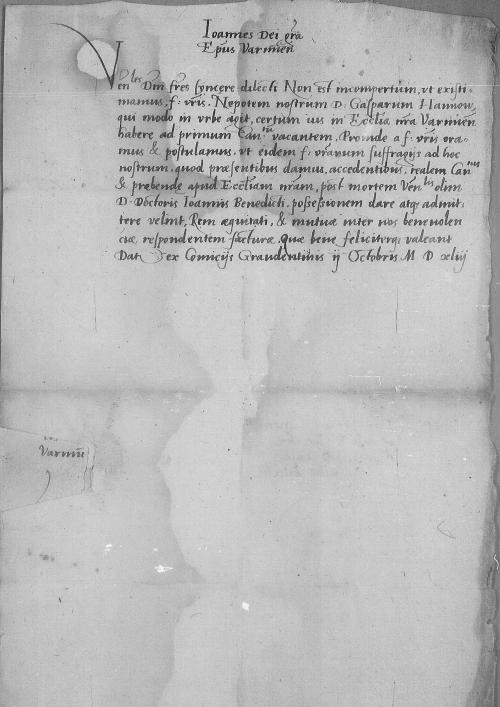 Ioannes Dei gra
Epus Varmien
Vles
en Dni fres syncere dilecti Non est incompertum, vt existi-
mamus, f: vris. Nepotem nostrum D. Gasparum Hannow,
qui modo in vrbe agit, certum ius in Ecclia nra Varmien
habere ad primum Can tum vacantem, Proinde a f: vris ora-
mus & postulamus. vt eidem f: vrarum suffragijs ad hoc
nostrum, quod præsentibus damus, accedentibus, realem Can tus
& prebende apud Eccliam nram, post mortem Ven lis olim
D. Doctoris Ioannis Benedicti, possessionem dare atq; admit-
tere velint, Rem æquitati, & mutuæ inter nos beneuolen
ciæ respondentem facturæ, Quæ bene feliciterq; valeant
Dat ex Comicijs Graudentinis ij Octobris M D xlij
Varmien